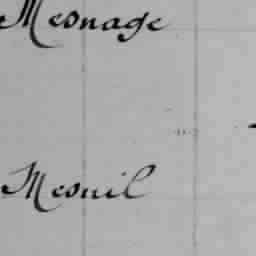 Mesnage
Mesnil